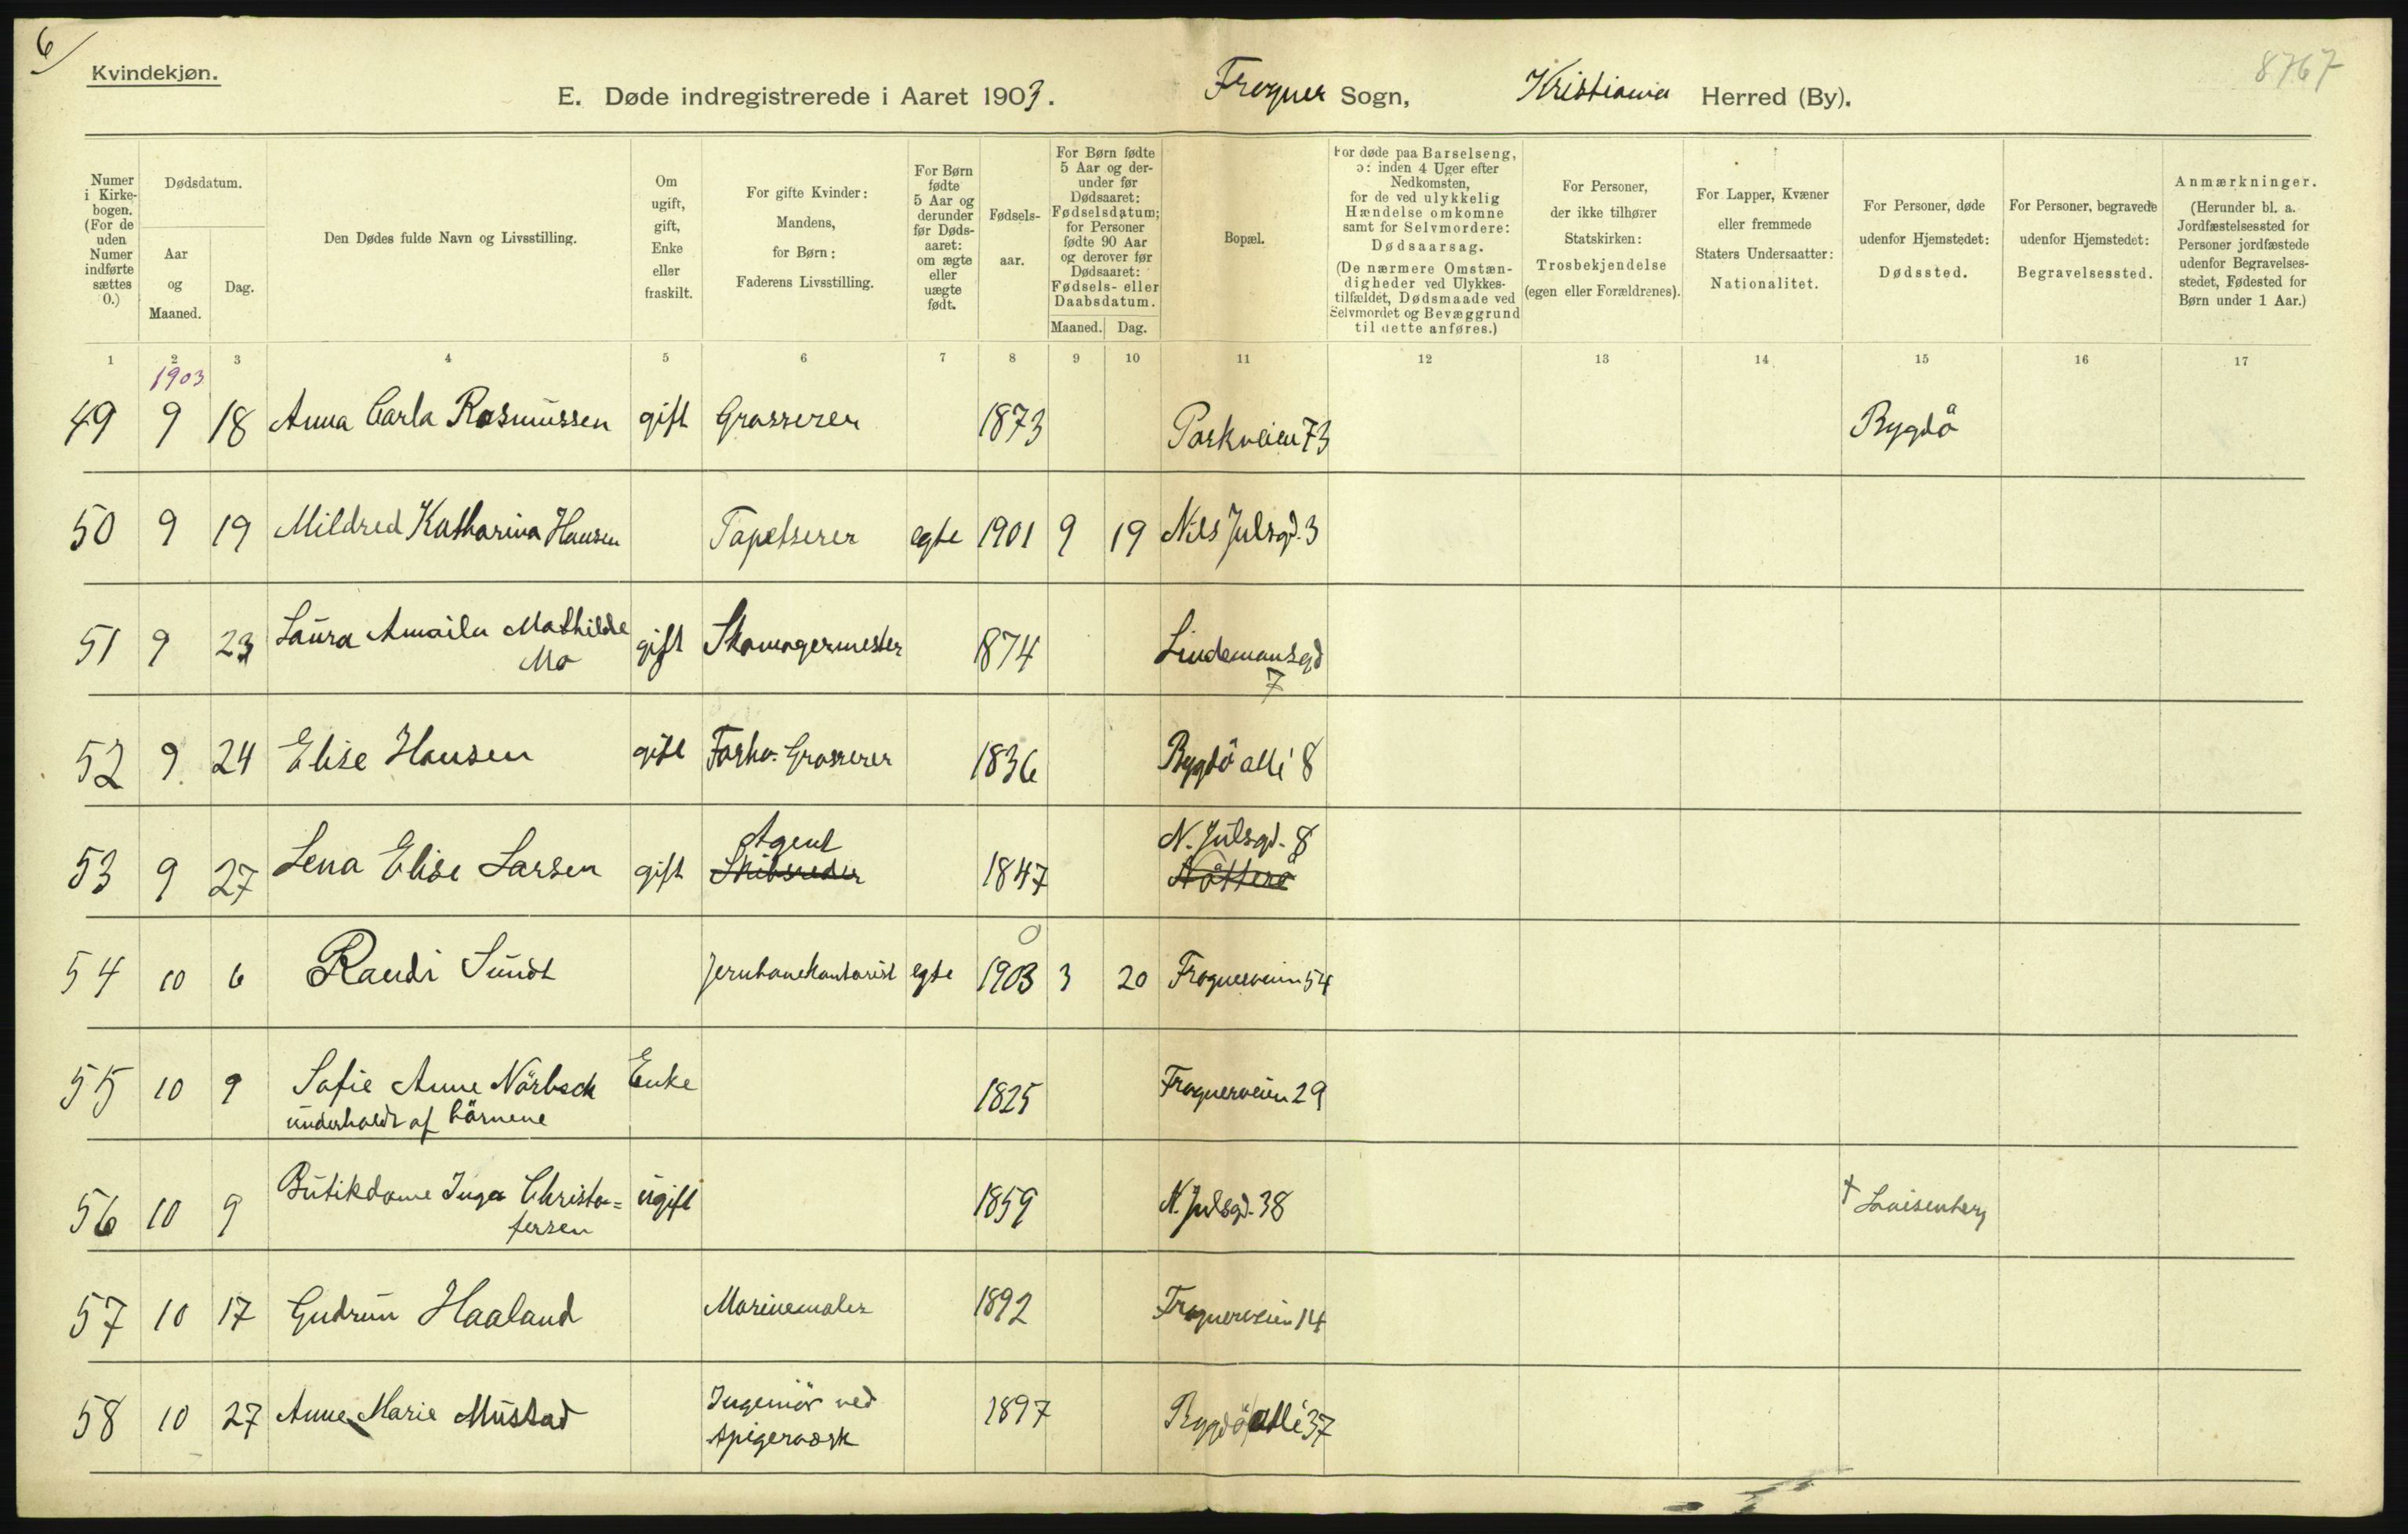 6/
Kvindekjøn.
8767
E. Døde indregistrerede i Aaret 1903. Frogner Sogn, Kristiania Herred (By).
Numer i Kirkebogen. (For de uden Numer indførte sættes 0.)
Dødsdatum.
Aar og Maaned.
Dag.
Den Dødes fulde Navn og Livsstilling.
Om ugift, gift, Enke eller fraskilt.
For gifte Kvinder: Mandens, for Børn: Faderens Livsstilling.
For Børn fødte 5 Aar og derunder før Dødsaaret: om ægte eller uægte født.
Fødselsaar.
For Børn fødte 5 Aar og derunder før Dødsaaret: Fødselsdatum; for Personer fødte 90 Aar og derover før Dødsaaret: Fødsels- eller Daabsdatum.
Maaned. Dag.
Bopæl.
For døde paa Barselseng, ɔ: inden 4 Uger efter Nedkomsten, for de ved ulykkelig Hændelse omkomne samt for Selvmordere: Dødsaarsag. (De nærmere Omstændigheder ved Ulykkestilfældet, Dødsmaade ved Selvmordet og Bevæggrund til dette anføres.)
For Personer, der ikke tilhører Statskirken: Trosbekjendelse (egen eller Forældrenes).
For Lapper, Kvæner eller fremmede Staters Undersaatter: Nationalitet.
For Personer, døde udenfor Hjemstedet: Dødssted.
For Personer, begravede udenfor Hjemstedet: Begravelsessted.
Anmærkninger. (Herunder bl. a. Jordfæstelsessted for Personer jordfæstede udenfor Begravelsesstedet, Fødested for Børn under 1 Aar.)
1 2 3 4 5 6 7 8 9 10 11 12 13 14 15 16 17
1903
49 9 18 Anna Carla Rasmussen gift Grosserer 1873 Parkveien 73 Bygdö
50 9 19 Mildred Katharina Hansen Tapetserer egte 1901 9 19 Nils Julsgd. 3
51 9 23 Laura Amaila Mathilde gift Skomagermester 1874 Lindemansgd
Mo 7
52 9 24 Elise Hansen gift Forhv. Grosserer 1836 Bygdö allé 8
Agent N. Julsgd. 8
53 9 27 Lena Elise Larsen gift Skibsreder 1847 Nötterö
54 10 6 Randi Sundt Jernbanekontorist egte 1903 3 20 Frognerveien 54
55 10 9 Sofie Anne Nörbeck Enke 1825 Frognerveien 29
underholdt af börnene
56 10 9 Butikdame Inga Christo= ugift 1859 N. Julsgd. 38 † Lovisenberg
fersen
57 10 17 Gudrun Haaland Marinemaler 1892 Frognerveien 14
58 10 27 Anne Marie Mustad Ingeniör ved 1897 Bygdö allé 37
Spigerværk